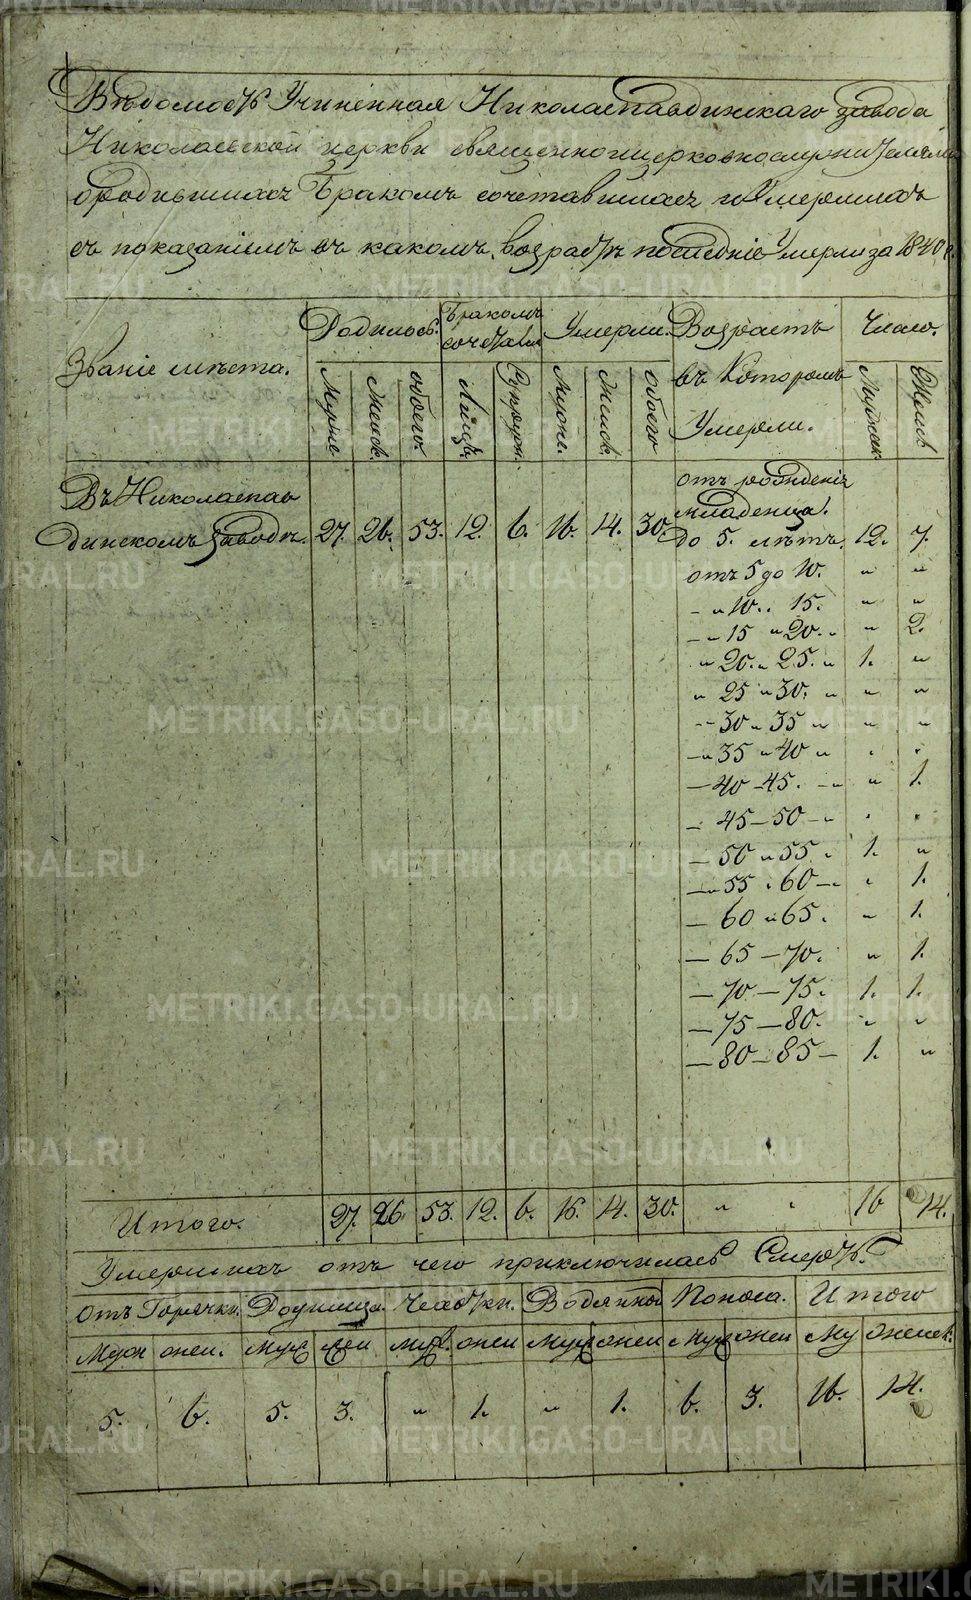 Вѣдомость Учиненная Николаепавдинскаго завода
Николаевской церкви священноицерковнослужительми
ородившихся Бракомъ сочетавшихся и Умершихъ
съ показаніемъ въ какомъ возрастѣ последніе Умерли за 1840 г.
Званіе мѣста. Родилось. Бракомъ сочетались Умерли. Возрастъ въ Которомъ Умерли. Число.
Мужск Женск. обоего. Лицъ Супруж. Мужс. Женск. обоего Мужеск. Женск
Въ Николаепав
динскомъ Заводѣ. 27. 26. 53. 12. 6. 16. 14. 30.
отъ рожденія
младенца.
до 5. лѣтъ. 12. 7.
отъ 5 до 10. „ „
– „ 10. . 15. „ „
– „ 15 „ 20. „ „ 2.
„ 20. „ 25. „ 1. „
„ 25 „ 30. „ „ „
– 30 „ 35 „ „ „
– „ 35 „ 40 „ „ „
– 40 – 45. – „ „ 1.
– 45 – 50 – „ „ „
– 50 „ 55. „ 1. „
– „ 55 „ 60 – „ „ 1.
– 60 „ 65. „ 1.
– 65 – 70. „ 1.
– 70 – 75. 1. 1.
– 75 – 80. „ „
– 80 – 85 – 1. „
Итого. 27. 26 53. 12. 6. 16. 14. 30. „ „ 16 14.
Умершихъ отъ чего приключилась Смерть.
Отъ Горячки. Родимца. Чахотки. Водяной Поноса. Итого
Муж жен. Муж жен муж. жен Муж жен Муж жен Му женск.
5. 6. 5. 3. „ 1. „ 1. 6. 3. 16. 14.
METRIKI.GASO-URAL.RU